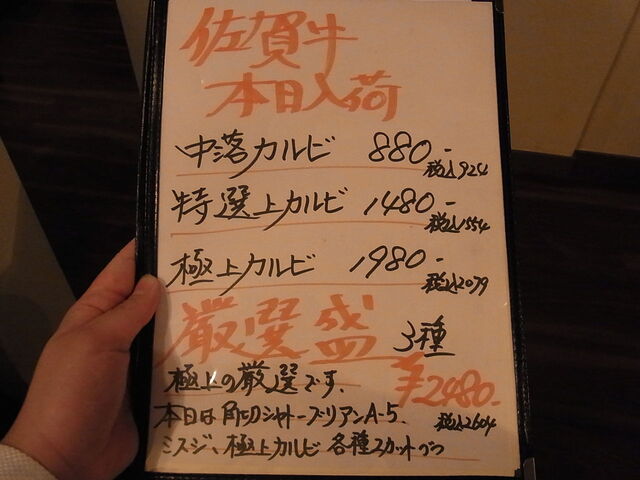 佐賀牛
本日入荷
中落カルビ 880-
税込924
特選上カルビ 1480-
税込1554
極上カルビ 1980-
税込2079
厳選盛 3種
極上の厳選です、 ¥2480-
本日は角切シャトーブリアンA-5、 税込2604
ミスジ、極上カルビ 各種2カットづつ